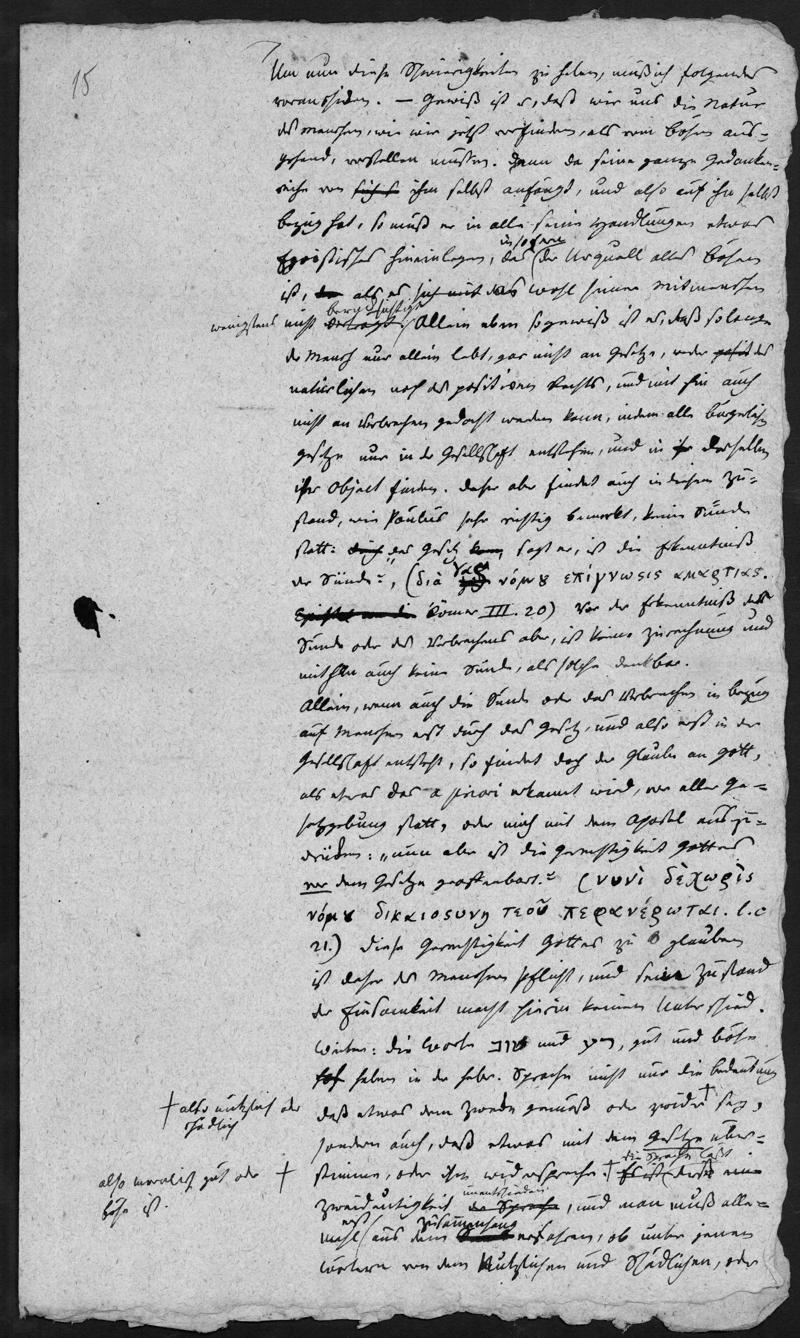 15
Um nun diese Schwierigkeiten zu heben, muß ich folgendes
voranschicken. — Gewiß ist es, daß wir uns die Natur
des Menschen, wie wir jetzt vorfinden, als vom bösen aus-
gehend, vorstellen müssen. Denn da seine ganze Gedanken-
reihe von sich s ihm selbst anfängt, und also auf ihn selbst
bezug hat, so muß er in alle seine Handlungen etwas
Egoistisches hineinlegen, das in sofern der Urquell alles Bösen
ist, als es das Wohl seiner Mitmenschen
wenigstens nicht begünstigt. Allein eben so gewiß ist es, daß so lange
der Mensch nur allein lebt, gar nicht an Gesetze, weder des
natürlichen noch des positiven Rechts, und mit hin auch
nicht an Verbrechen gedacht werden kann, indem alle bürgerliche
gesetze nur in der Gesellschaft entstehen, und in derselben
ihr Object finden. Daher aber findet auch in diesem Zu-
stand, wie Paulus sehr richtig bemerkt, keine Sünde
statt: durch „das Gesetz kom, sagt er, ist die Erkenntniß
der Sünde", (διὰ γὰρ νόμȣ επίγνωσις αμαρτιας.
Römer III. 20) Vor der Erkenntniß der
Sünde oder des Verbrechens aber, ist keine Zurechnung und
mithin auch keine Sünde, als solche denkbar.
Allein, wenn auch die Sünde oder das Verbrechen in bezug
auf Menschen erst durch das Gesetz, und also erst in der
Gesellschaft entsteht, so findet doch der Glaube an Gott,
als etwas das a priori erkannt wird, vor aller Ge-
setzgebung statt, oder mich mit dem Apostel auszu-
drücken: „nun aber ist die Gerechtigkeit Gottes
vor dem Gesetze geoffenbart." (νυνὶ δὲ χωρὶς
νόμȣ δικαιοσυνη τεοῦ πεφανέρωται. l.c
21.) Diese Gerechtigkeit Gottes zu glauben
ist daher des Menschen Pflicht, und sein Zustand
der Einsamkeit macht hierin keinen Unterschied.
Weiter: die Worte טוב und רע, gut und böse
haben in der hebr. Sprache nicht nur die bedeutung
† also nützlich oder
schädlich
daß etwas dem Zwecke gemäß oder zwider † sey,
sondern auch, daß etwas mit dem Gesetze über-
also moralisch gut oder †
böse ist.
stimme, oder ihm widerspreche. † die Sprache läßt diese
zweideutigkeit unentschieden, und man muß alle-
mahl erst aus dem Zusammenhang erfahren, ob unter jenen
Wörtern von dem Nützlichen und Schädlichen, oder